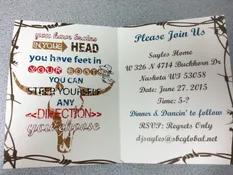 you have brains
IN YOUR HEAD
you have feet in
YOUR BOOTS
YOU CAN
STEER YOURSELF
ANY
<<DIRECTION>>
you choose
Please Join Us
Sayles Home
W 326 N 4774 Buckhorn Dr
Nashota WI 53058
Date: June 27, 2015
Time: 5-?
Dinner & Dancin' to follow
RSVP: Regrets Only
djsayles@sbcglobal.net